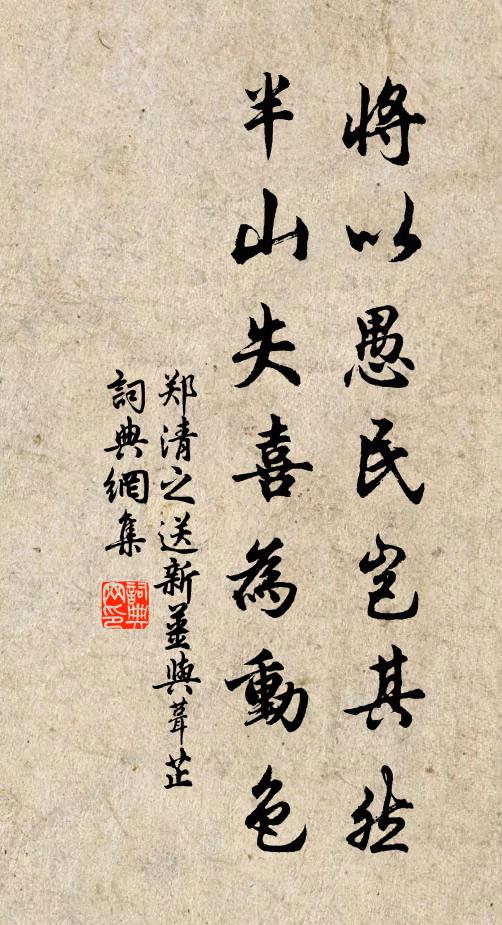 將以愚民豈其然
半山失喜為動色
郑清之送新薑與葺芷
詞典網集
詞典網印